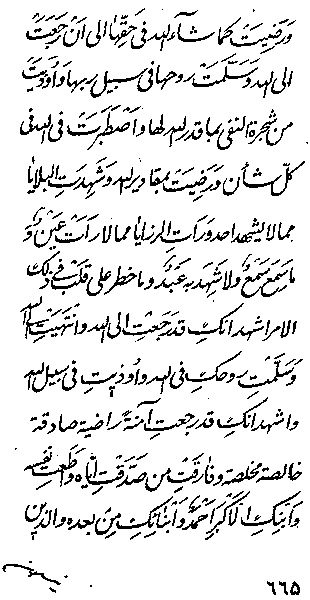 و رضیت کما شاء الله فی حقها الی ان رجعت
الی الله و سلّمت روحها فی سبیل ربها و اوذیت
من شجرة النفی بما قدر الله لها و اصطبرت فی الله فی
کلّ شأن و رضیت بمقادیر الله و شهدت البلایا
مما لا یشهد احد و رأت الرزایا مما لا رأت عین و
ما سمع سمع و لا شهد به عبد و ما خطر علی قلب فی ذلک
الامر اشهد انک قد رجعت الی الله و انتهیت الیه
و سلّمت روحک فی الله و اوذیت فی سبیل الله
و اشهد انک قد رجعت آمنة راضیة صادقة
خالصة مخلصة و فارقت من صدّقت ایّاه و اطعت نفسه
و ابنک الاکبر احمد و ابنائک من بعده و الذین
۶۶۵